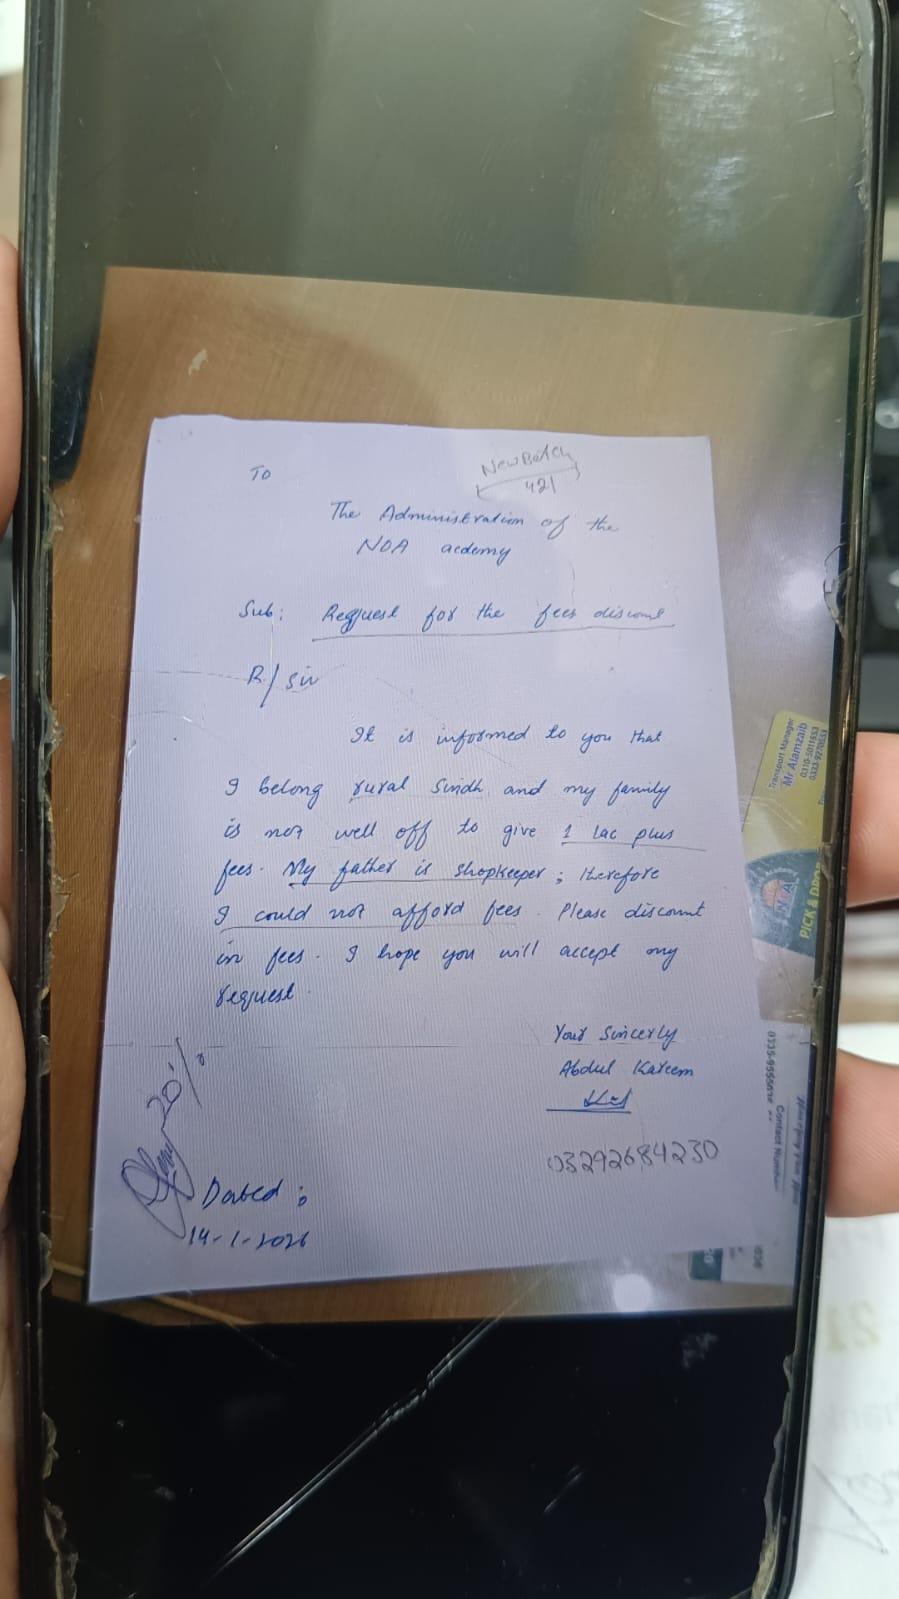 New Batch
421
To
The Administration of the
NOA acdemy
Sub: Request for the fees discount
R/sir
It is informed to you that
I belong rural Sindh and my family
is not well off to give 1 lac plus
fees. My father is shopkeeper; therefore
I could not afford fees. Please discount
in fees. I hope you will accept my
request.
Your Sincerly
Abdul Kareem
03292684230
20%
Dated:
14-1-2026
Transport Manager
Mr Alamzaib
0310-5011553
0333-9270553
NOA
PICK & DROP
Contact Number